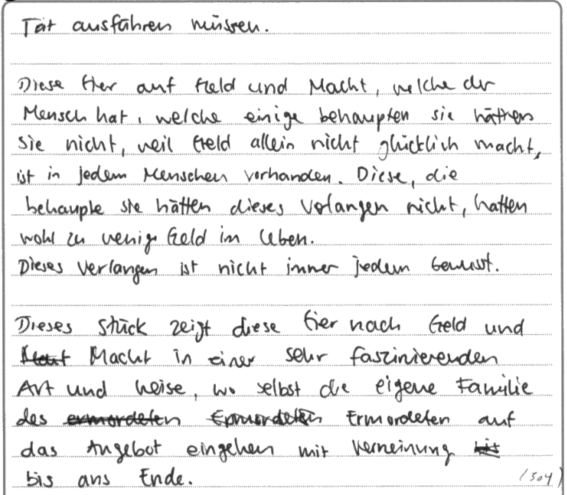 Tat ausführen müssen.
Diese Gier auf Geld und Macht, welche der
Mensch hat, welche einige behaupten sie hätten
sie nicht, weil Geld allein nicht glücklich macht,
ist in jedem Menschen vorhanden. Diese, die
behaupte sie hätten dieses Verlangen nicht, hatten
wohl zu wenig Geld im Leben.
Dieses Verlangen ist nicht immer jedem bewusst.
Dieses Stück zeigt diese Gier nach Geld und
Macht in einer sehr faszinierenden
Art und Weise, wo selbst die eigene Familie
des ermordeten Ermordeten Ermordeten auf
das Angebot eingehen mit Verneinung bis
bis ans Ende.
(504)